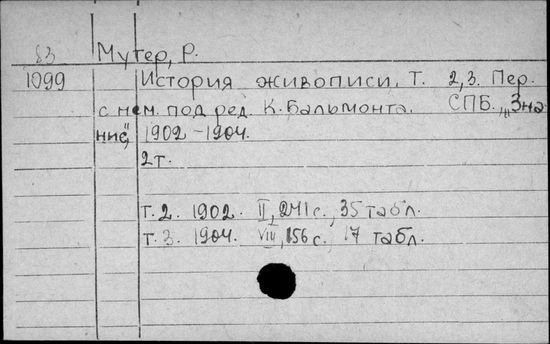 83 Мутер, Р.
1099 История живописи. Т. 2,3. Пер.
с нем. под ред. К. Бальмонта. СПБ., „Зна-
ние“, 1902-1904.
2 т.
т. 2. 1902. II, 241 с., 35 табл.
т. 3. 1904. VIII, 156 с., 17 табл.